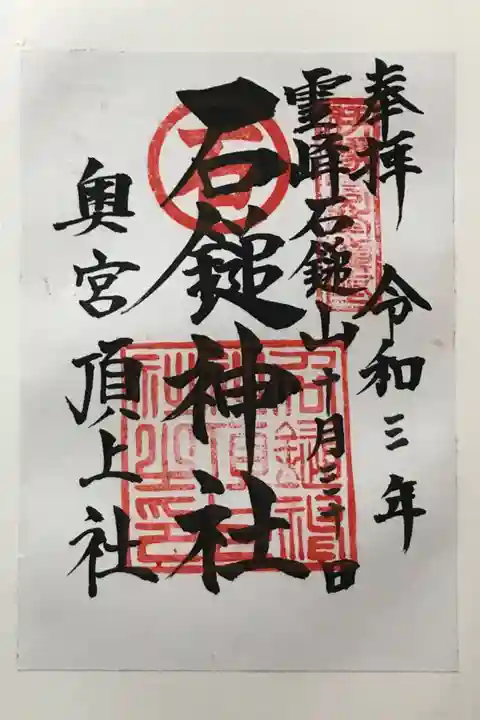 奉拝 令和三年
霊峰石鎚山十月三十日
石鎚神社
奥宮頂上社
石